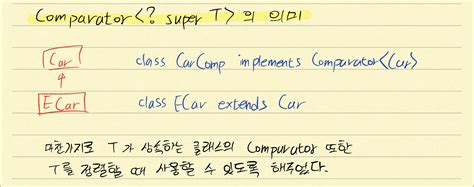 Comparator<? super T> 의 의미
Car class CarComp implements Comparator<Car>
ECar class ECar extends Car
마찬가지로 T가 상속하는 클래스의 Comparator 또한
T를 정렬할 때 사용할 수 있도록 해주었다.